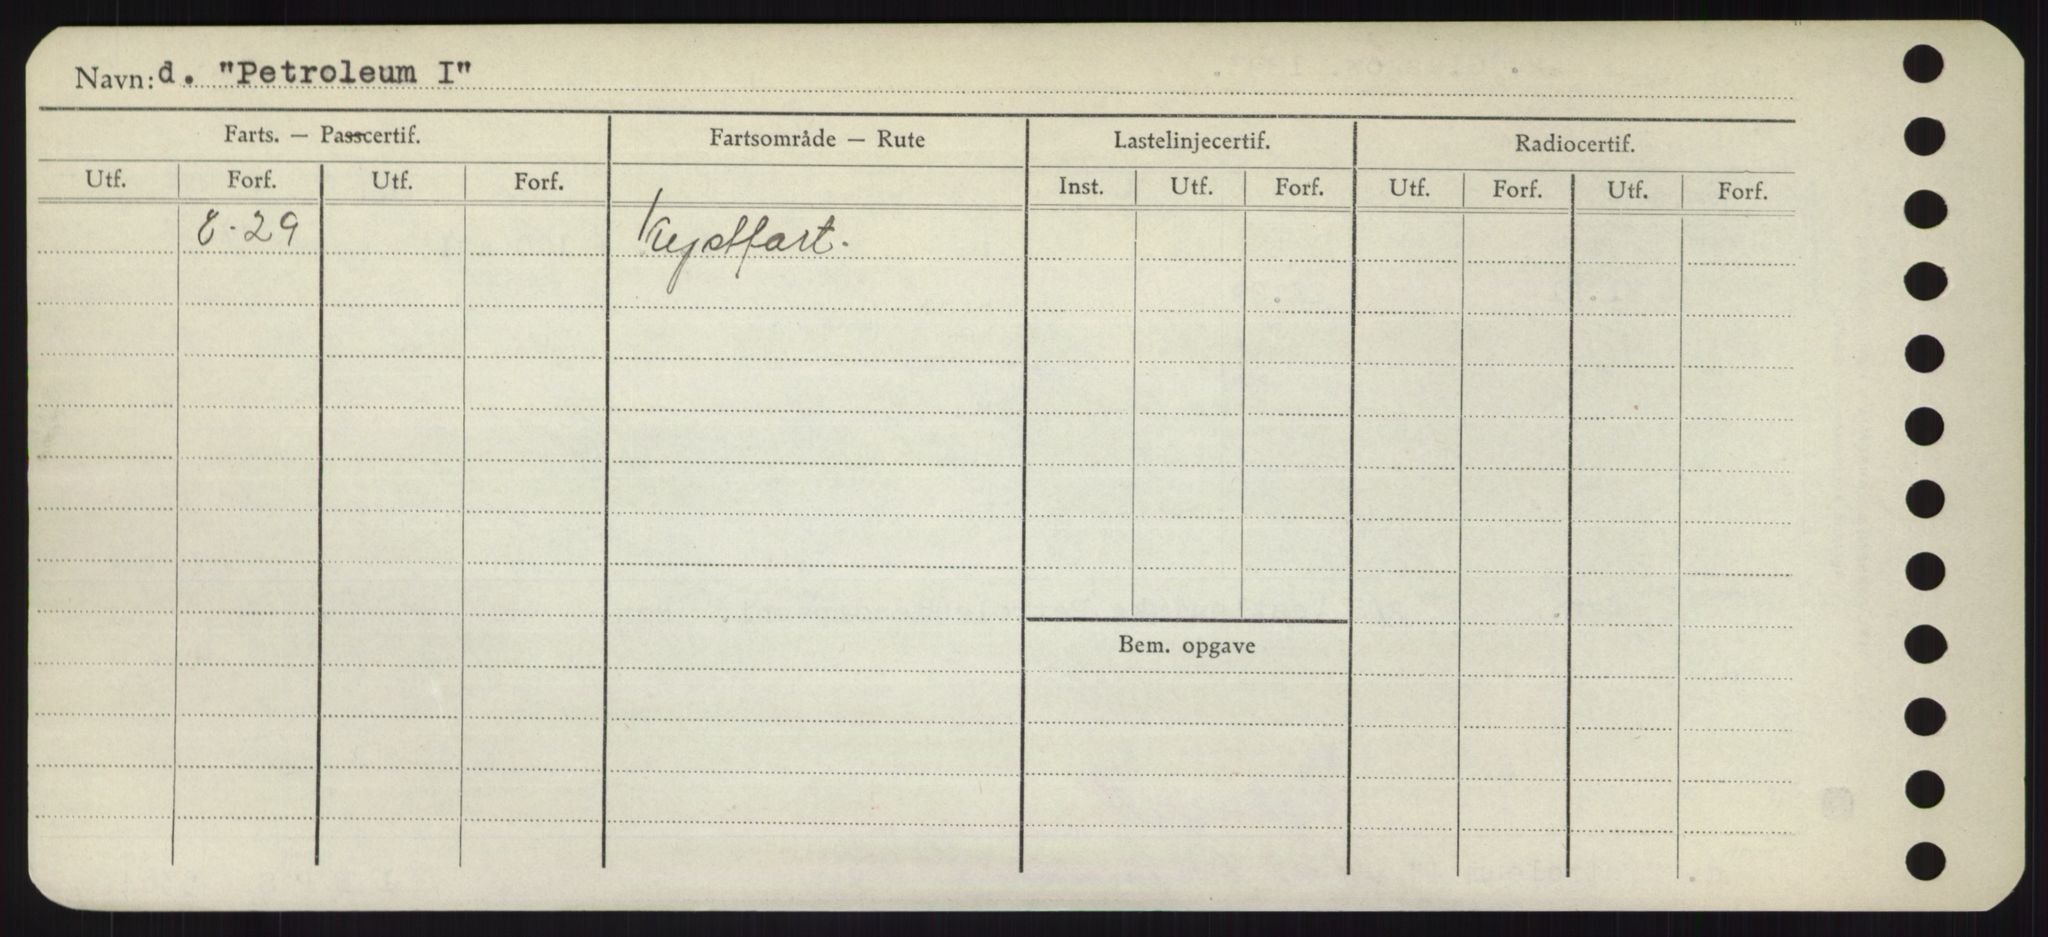 Navn: d. "Petroleum I"
Farts. — Passcertif. Fartsområde — Rute Lastelinjecertif. Radiocertif.
Utf. Forf. Utf. Forf. Inst. Utf. Forf. Utf. Forf. Utf. Forf.
8-29 Kystfart.
Bem. opgave